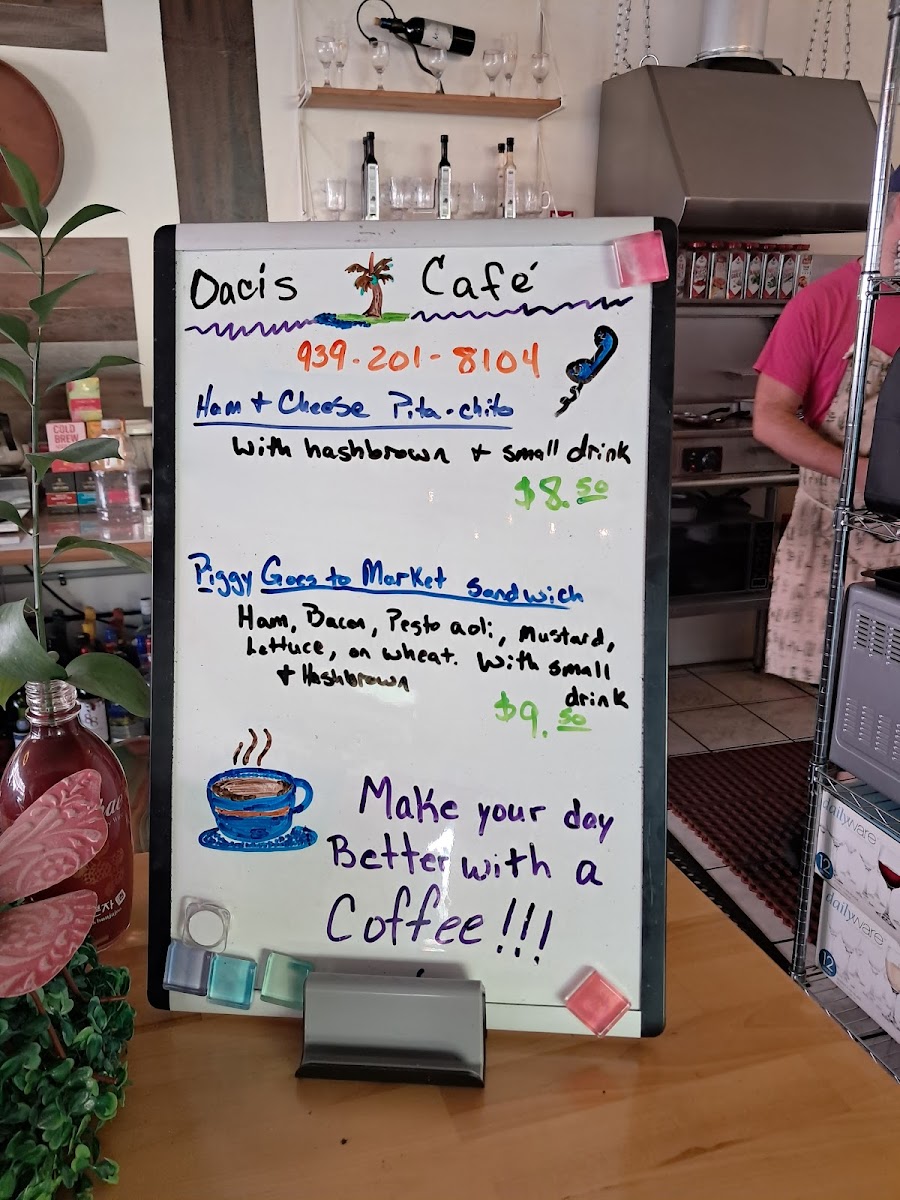 Oacis Café
939-201-8104
Ham + Cheese Pita-chito
with hashbrown + small drink
$8.50
Piggy Goes to Market sandwich
Ham, Bacon, Pesto aoli, mustard,
Lettuce, on wheat. With small
+ Hashbrown drink
$9.50
Make your day
Better with a
Coffee!!!
COLD
BREW
dailyware
12
dailyware
12